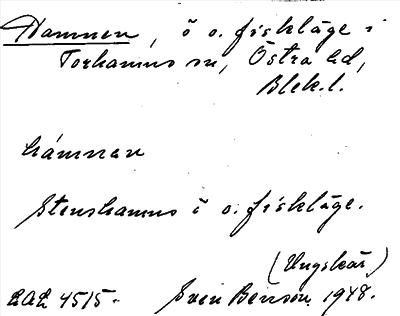 Hamnen, ö o. fiskläge i
Torhamns sn, Östra hd,
Blek.l.
hámnen
Stenshamns ö o. fiskläge.
(Ungskär)
LAL 4515. Sven Benson 1948.